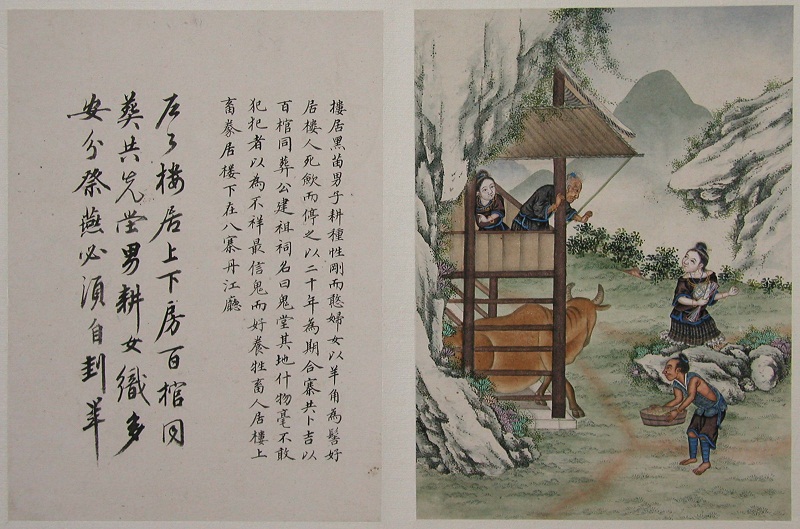 樓居黑苗男子耕種性剛而憨婦女以羊角為髻好
居樓人死歛而停之以二十年為期合寨共卜吉以
百棺同葬公建祖祠名曰鬼堂其地什物毫不敢
犯犯者以為不祥最信鬼而好養牲畜人居樓上
畜豢居樓下在八寨丹江廳
樓居上下房百棺同
葬共先堂男耕女織多
安分祭燕必須自刲羊